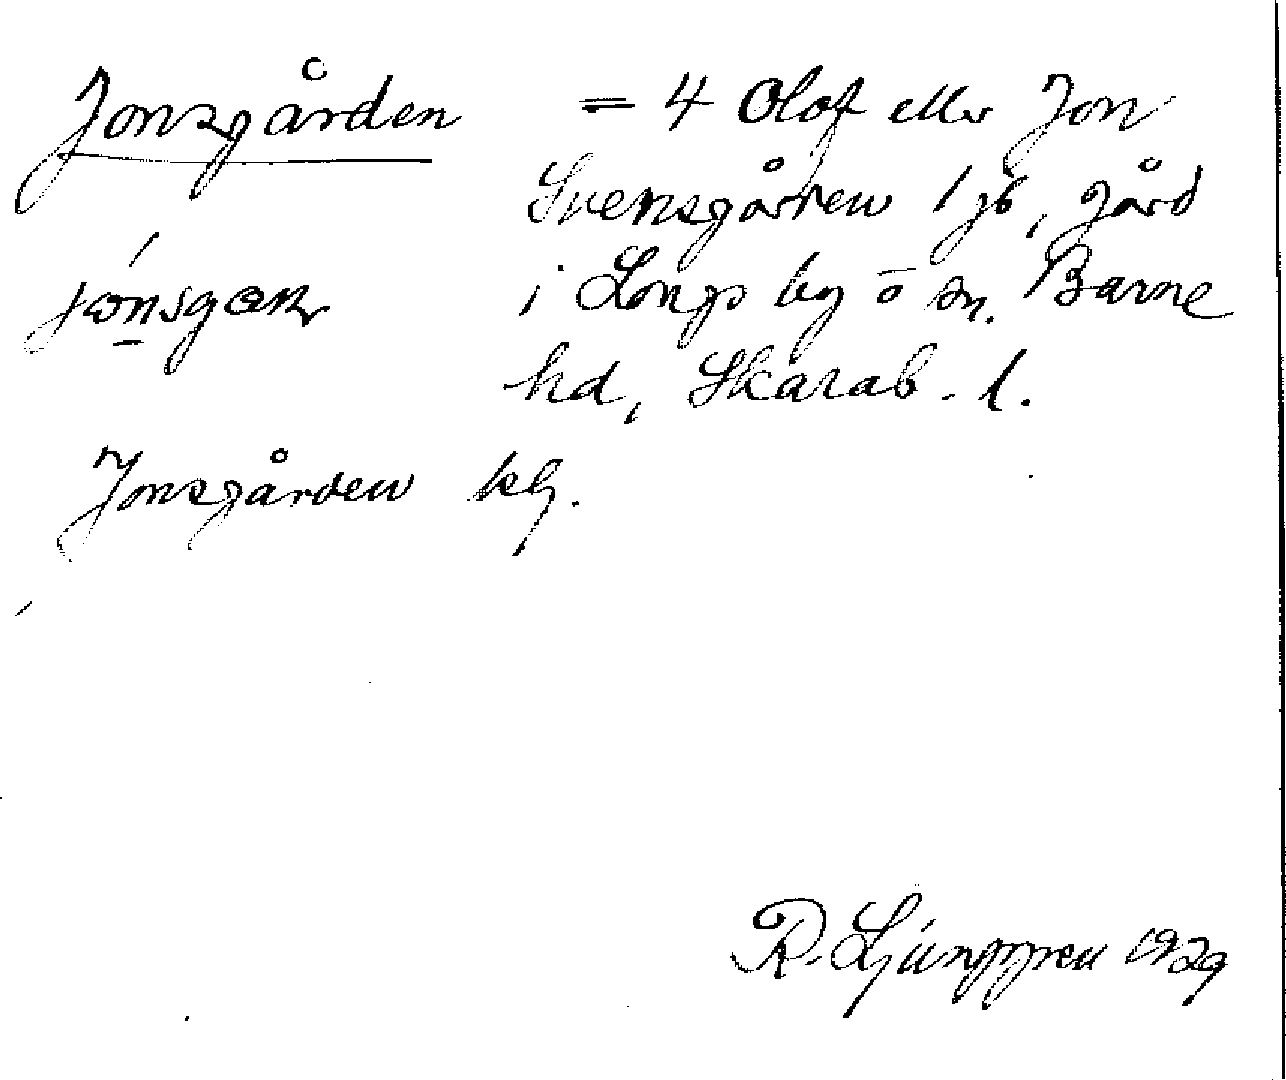 Jonsgården = 4 Olof eller Jon
Svensgården 1 jb, gård
i Longs by o sn. Barne
hd, Skarab. l.
Jonsgården kg.
R. Ljunggren 1929